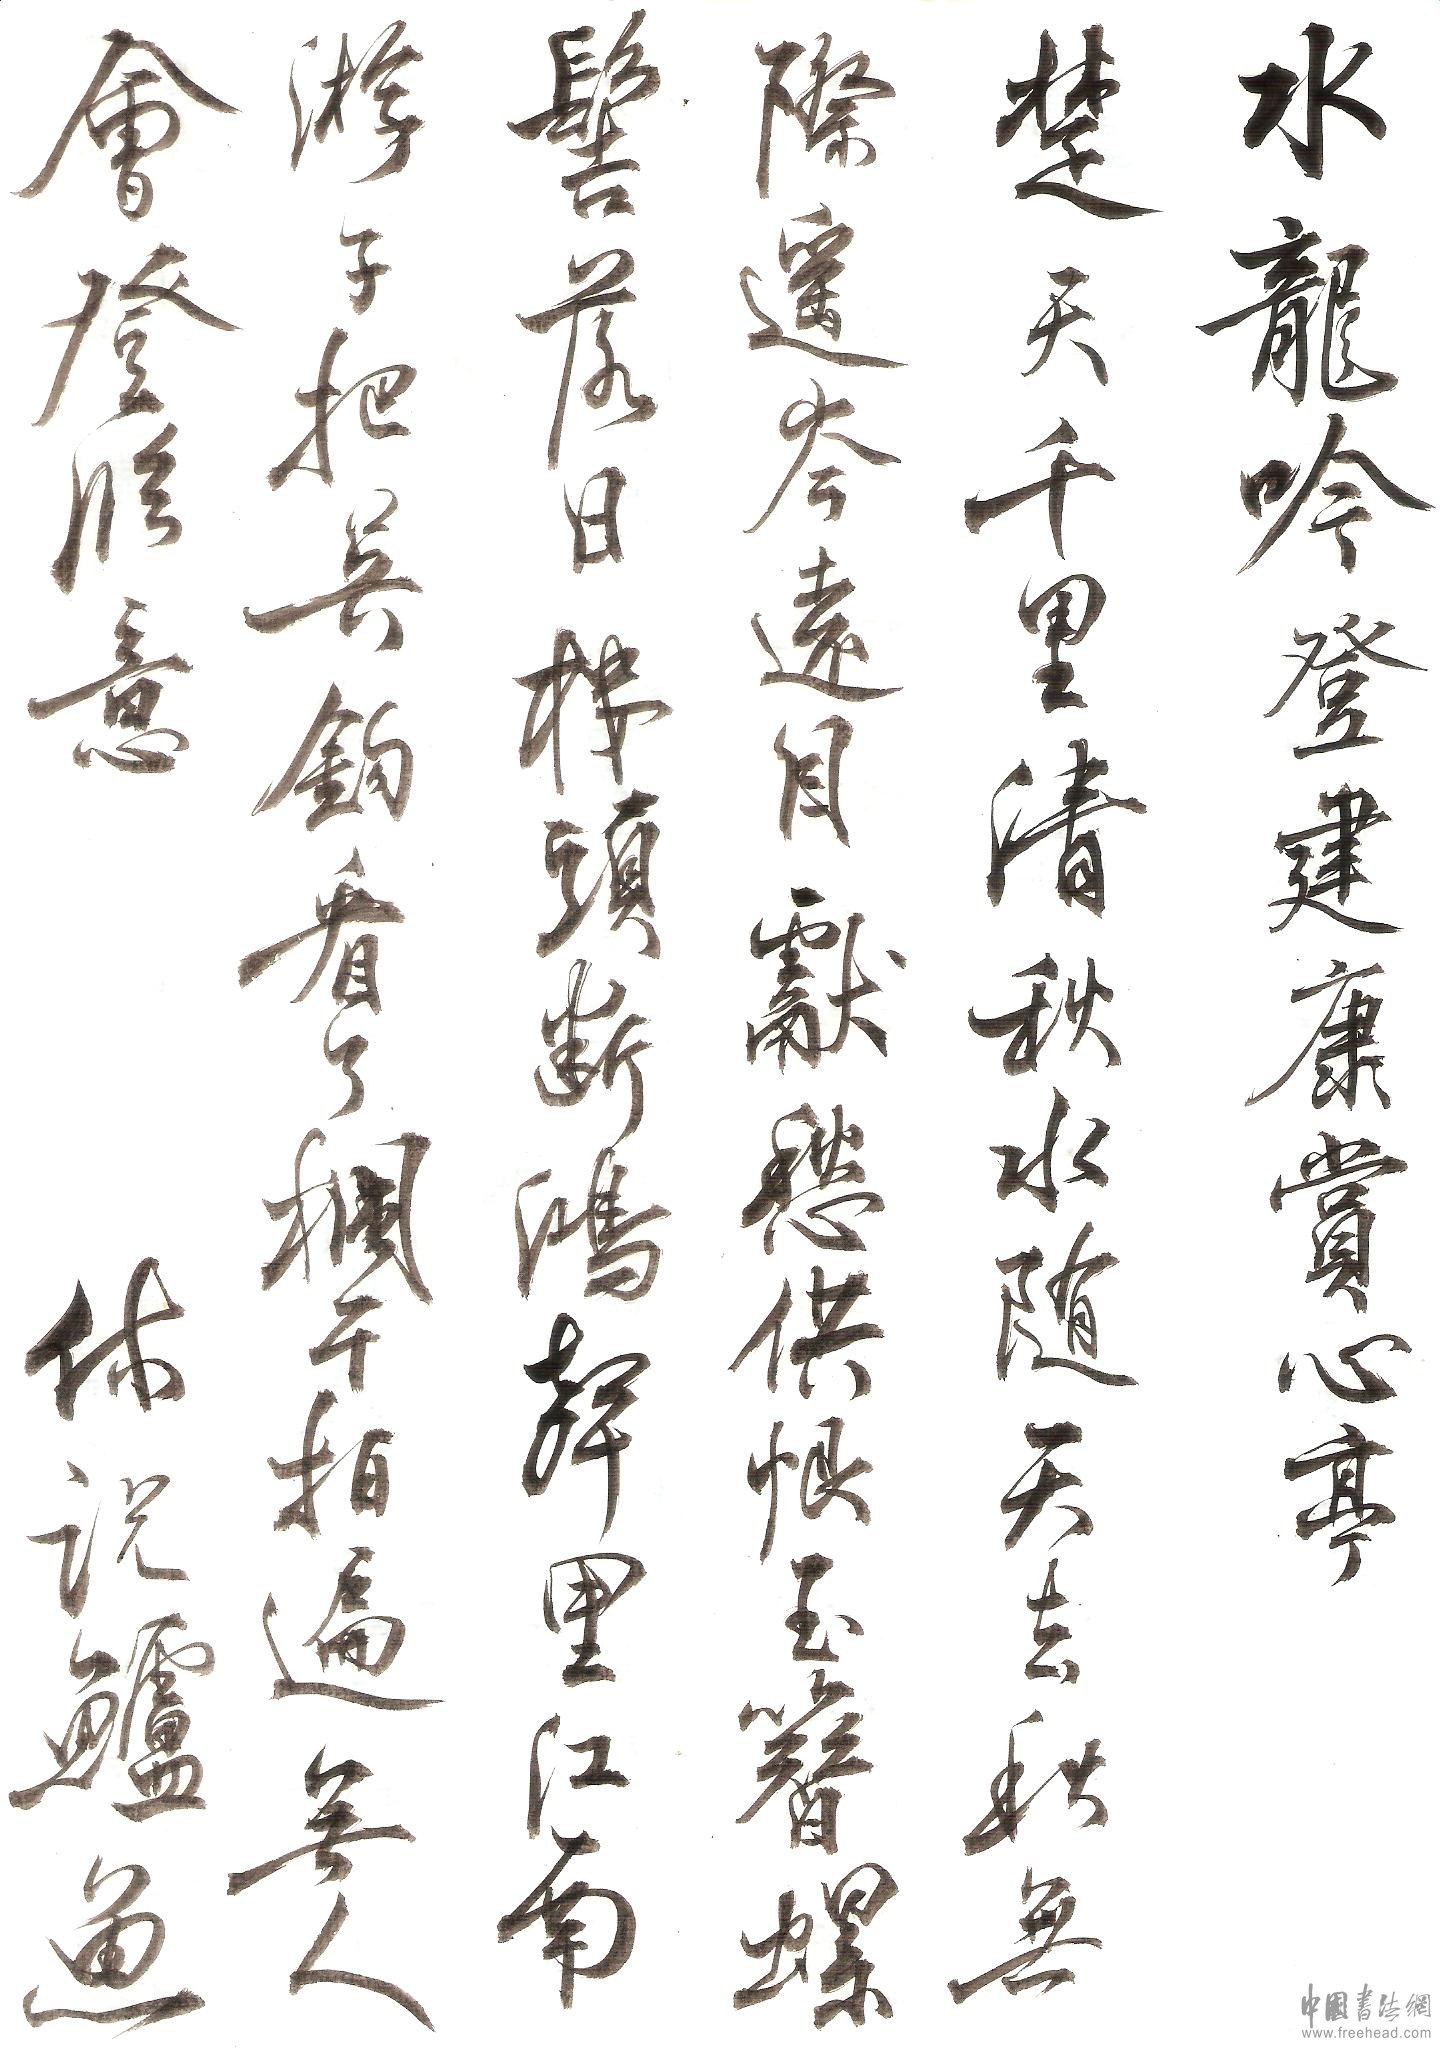 水龍吟登建康賞心亭
楚天千里清秋水随天去秋無
際遥岑遠目獻愁供恨玉簪螺
髻落日樓頭斷鴻聲里江南
游子把吴鈎看了欄干拍遍無人
會登臨意 休説鱸魚
中國書法網
www.freehead.com